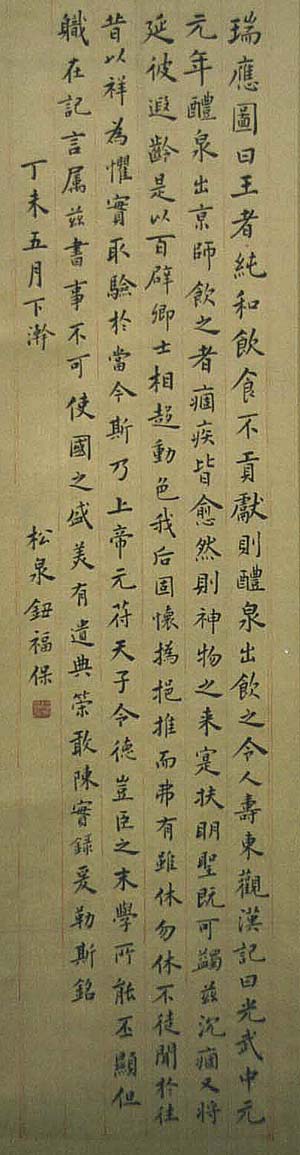 瑞應圖曰王者純和飲食不貢獻則醴泉出飲之令人壽東觀漢記曰光武中元
元年醴泉出京師飲之者痼疾皆愈然則神物之来寔扶明聖既可蠲茲沉痼又將
延彼遐齡是以百辟卿士相趍動色我后固懷撝挹推而弗有雖休勿休不徒聞於往
昔以祥為懼實取驗於當今斯乃上帝元苻天子令德豈臣之末學所能丕顯但
職在記言属茲書事不可使國之盛美有遺典策敢陳實錄爰勒斯銘
丁未五月下澣 松泉鈕福保